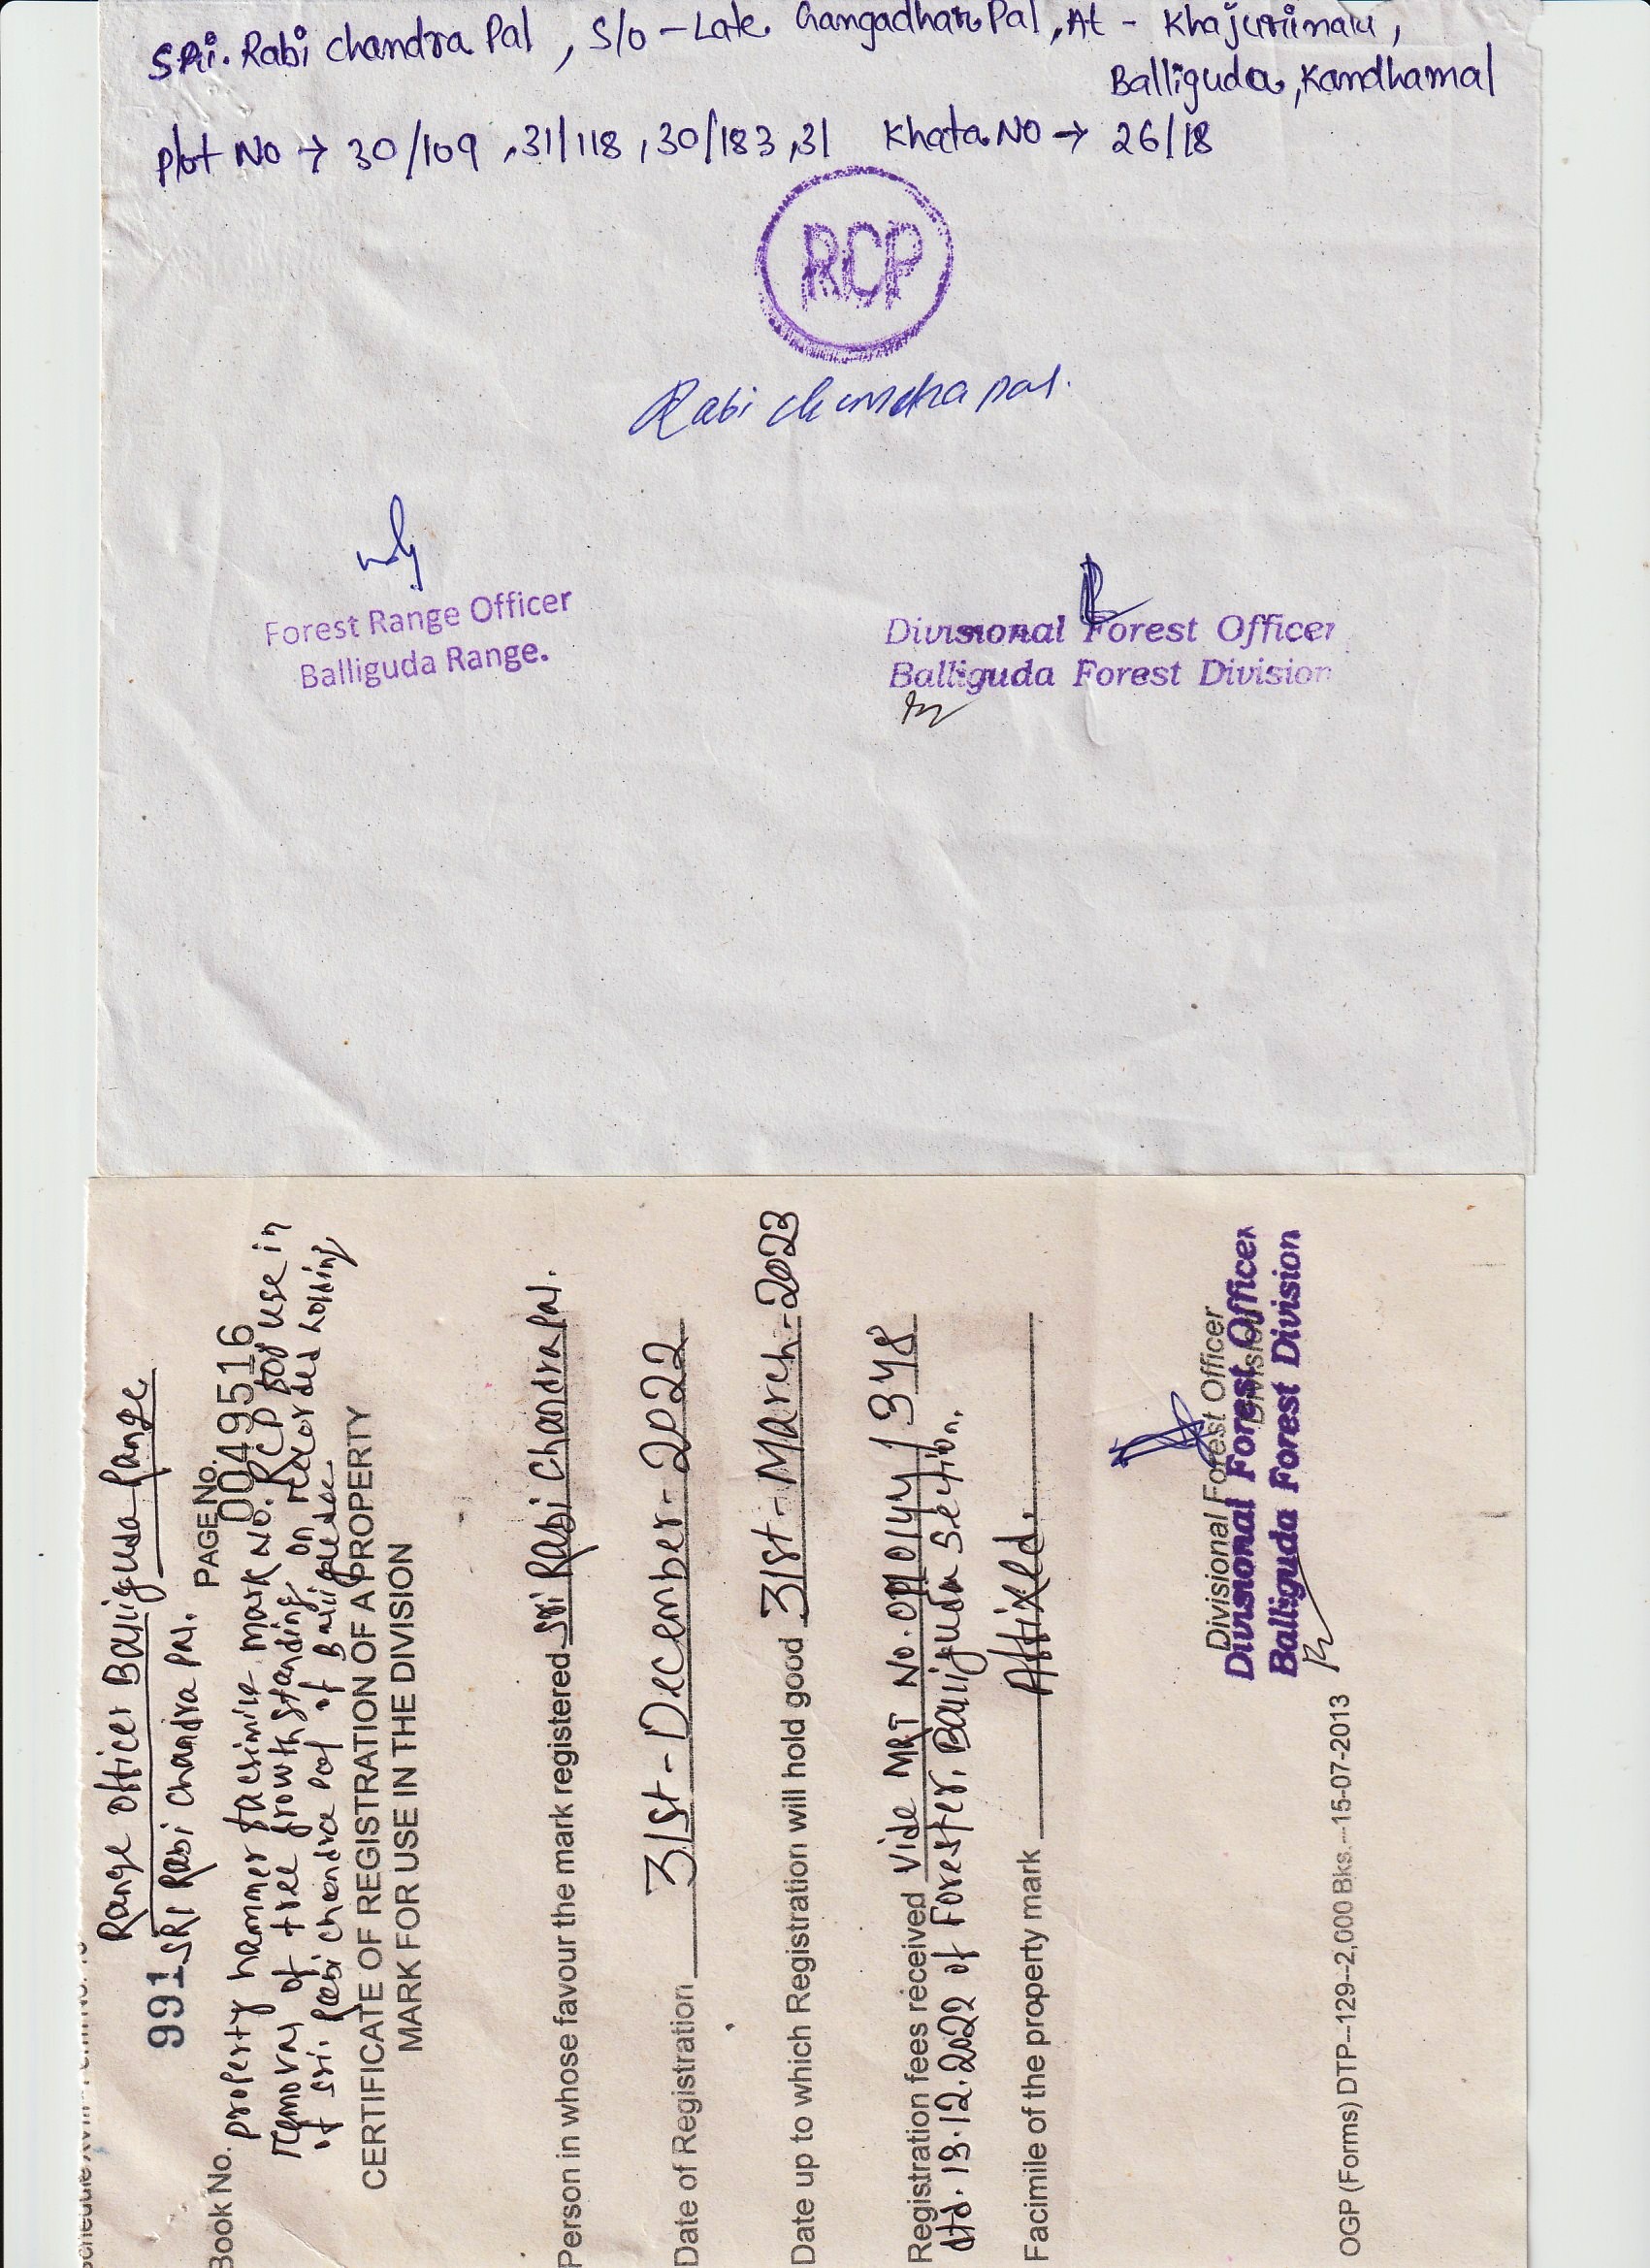 SRi. Rabi chandra Pal , S/o - Late. Gangadhar Pal , At - Khajurimaha ,
Balliguda , Kandhamal
Plot No → 30/109 , 31/118 , 30/183 , 31 Khata No → 26/18
RCP
Rabi chandra pal.
Forest Range Officer
Balliguda Range.
Divisional Forest Officer
Balliguda Forest Division
Range officer Balliguda Range
991 SRI Rabi Chandra Pal.
Book No. PAGE No. 0049516
property hammer facsimile mark No. RCP for use in
removal of tree growth standing on recorded holding
of sri. Rabi chandra Pal of Balliguda
CERTIFICATE OF REGISTRATION OF A PROPERTY
MARK FOR USE IN THE DIVISION
Person in whose favour the mark registered Sri Rabi Chandra Pal.
Date of Registration 31st - December - 2022
Date up to which Registration will hold good 31st - March - 2023
Registration fees received Vide MRT No. 348
dtd. 13.12.2022 of Forester, Balliguda Section.
Facimile of the property mark Affixed.
Divisional Forest Officer
Division
Divisional Forest Officer
Balliguda Forest Division
OGP (Forms) DTP--129--2,000 Bks.--15-07-2013